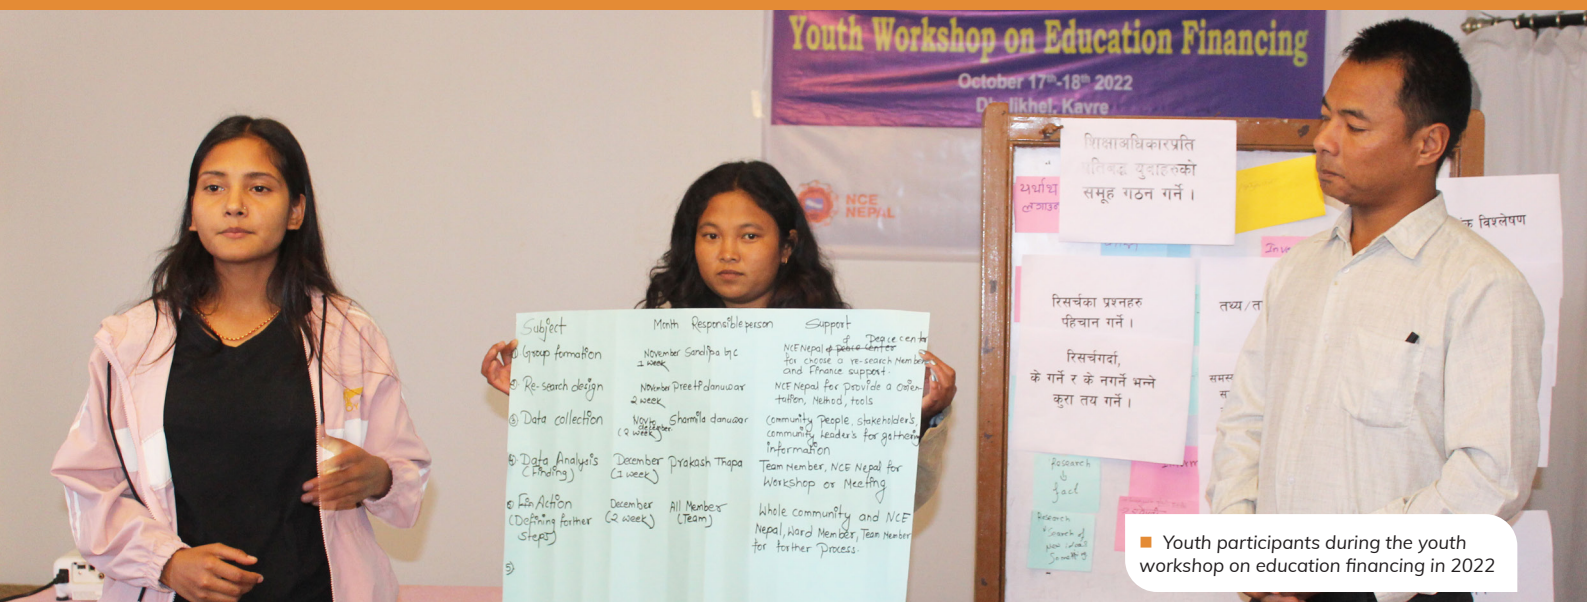 Youth Workshop on Education Financing
October 17th-18th 2022
Dhulikhel, Kavre
NCE
NEPAL
शिक्षाअधिकारप्रति
प्रतिबद्ध युवाहरुको
समूह गठन गर्ने ।
यर्थाथ
विश्लेषण
रिसर्चका प्रश्नहरु
पहिचान गर्ने ।
रिसर्चगर्दा,
के गर्ने र के नगर्ने भन्ने
कुरा तय गर्ने ।
तथ्य / त
समस
Research
&
fact
Research
Search of
new
Subject Month Responsible person Support
Group formation November 1 week Sandipa
NCE Nepal of Peace center
for choose a re-search Member
and Finance support.
Re-search design November 2 week Preeti danuwar
NCE Nepal for provide a Orien-
tation, Method, tools
Data collection Nov to december (2 week) Sharmila danuwar
Community People, stakeholder's,
community Leader's for gathering
information
Data Analysis (Finding) December (1 week) Prakash Thapa
Team Member, NCE Nepal for
Workshop or Meeting
Action (Defining forther steps) December (2 week) All Member (Team)
Whole community and NCE
Nepal, Ward Member, Team Member
for forther Process.
5)
Youth participants during the youth
workshop on education financing in 2022